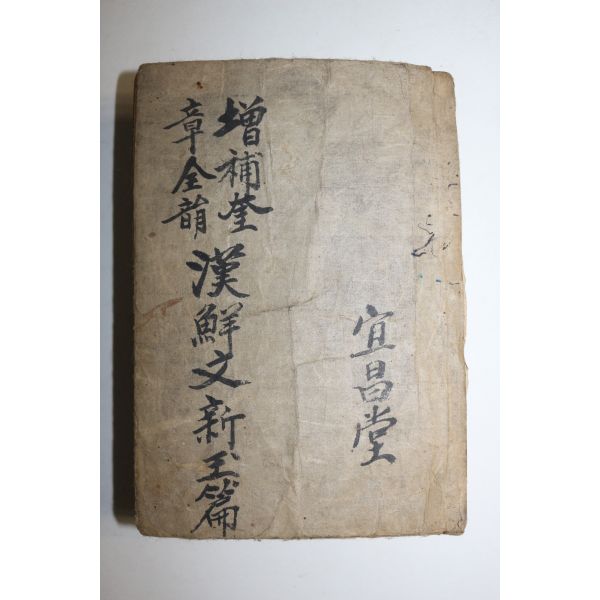 宜昌堂
增補奎
章全韻
漢鮮文新玉篇